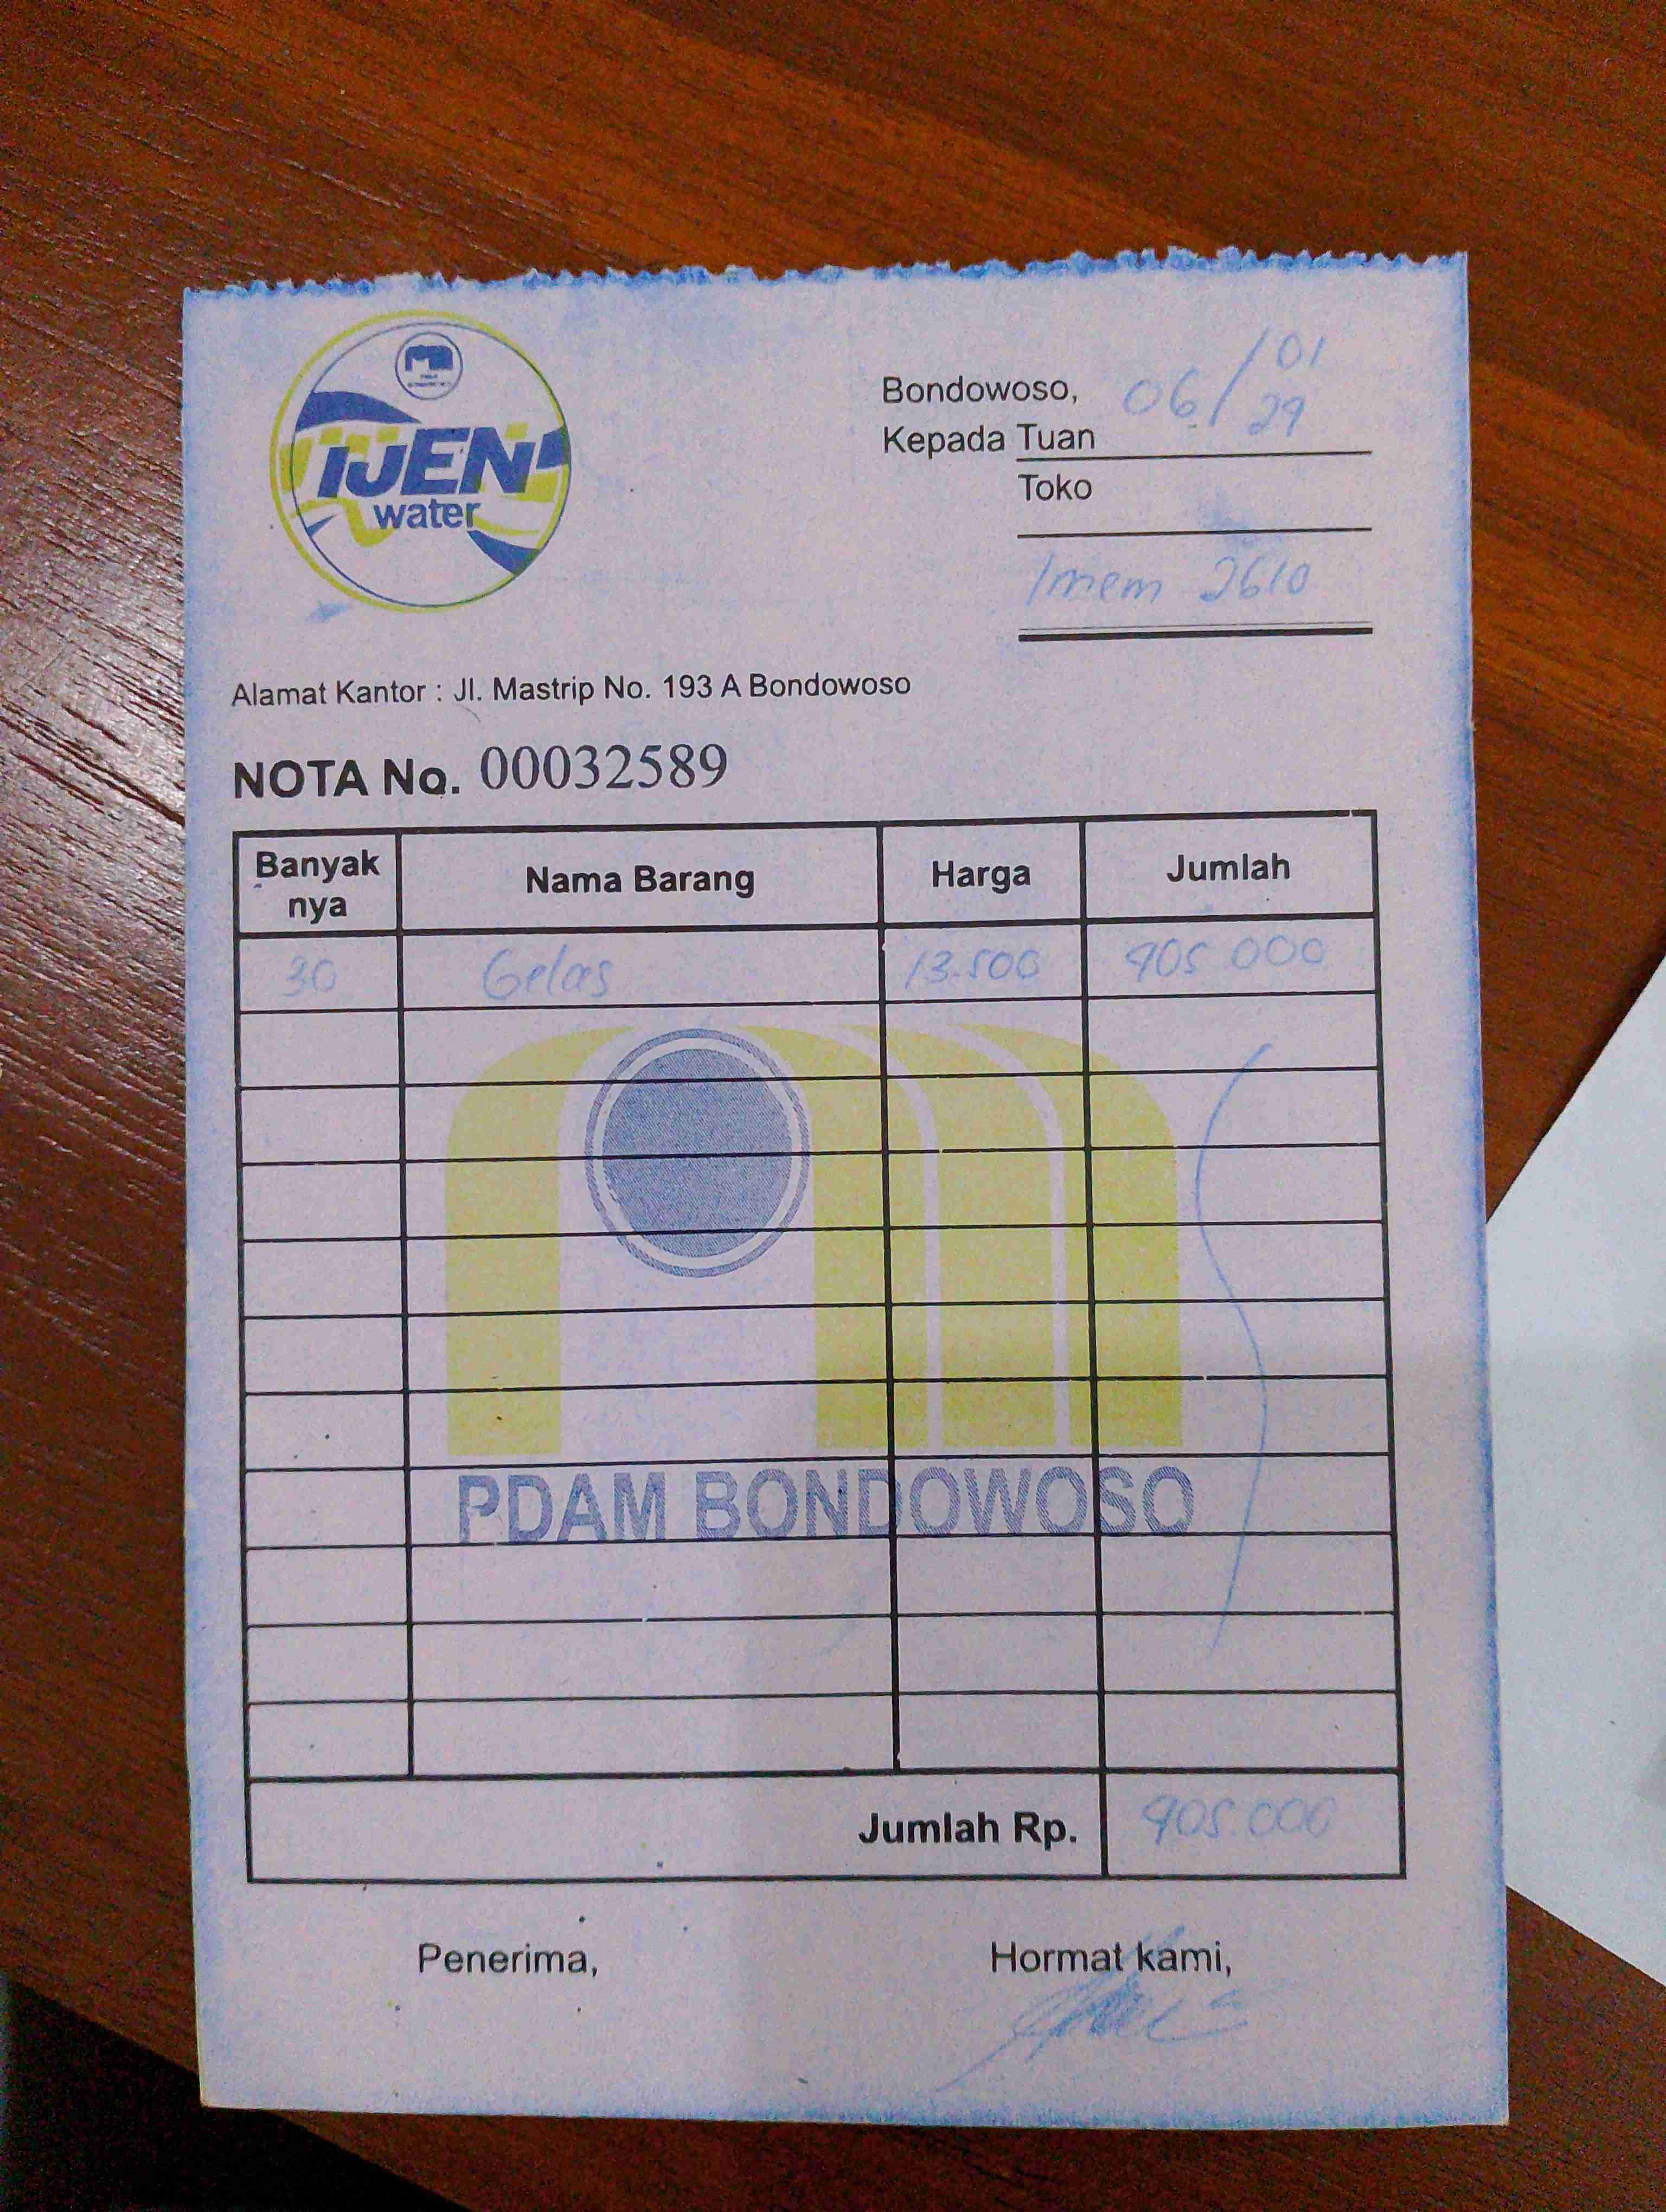 IJEN
water
Bondowoso, 06/01
29
Kepada Tuan
Toko
Imem 2610
Alamat Kantor : Jl. Mastrip No. 193 A Bondowoso
NOTA No. 00032589
Banyak nya Nama Barang Harga Jumlah
30 Gelas 13.500 405 000
PDAM BONDOWOSO
Jumlah Rp. 405.000
Penerima, Hormat kami,